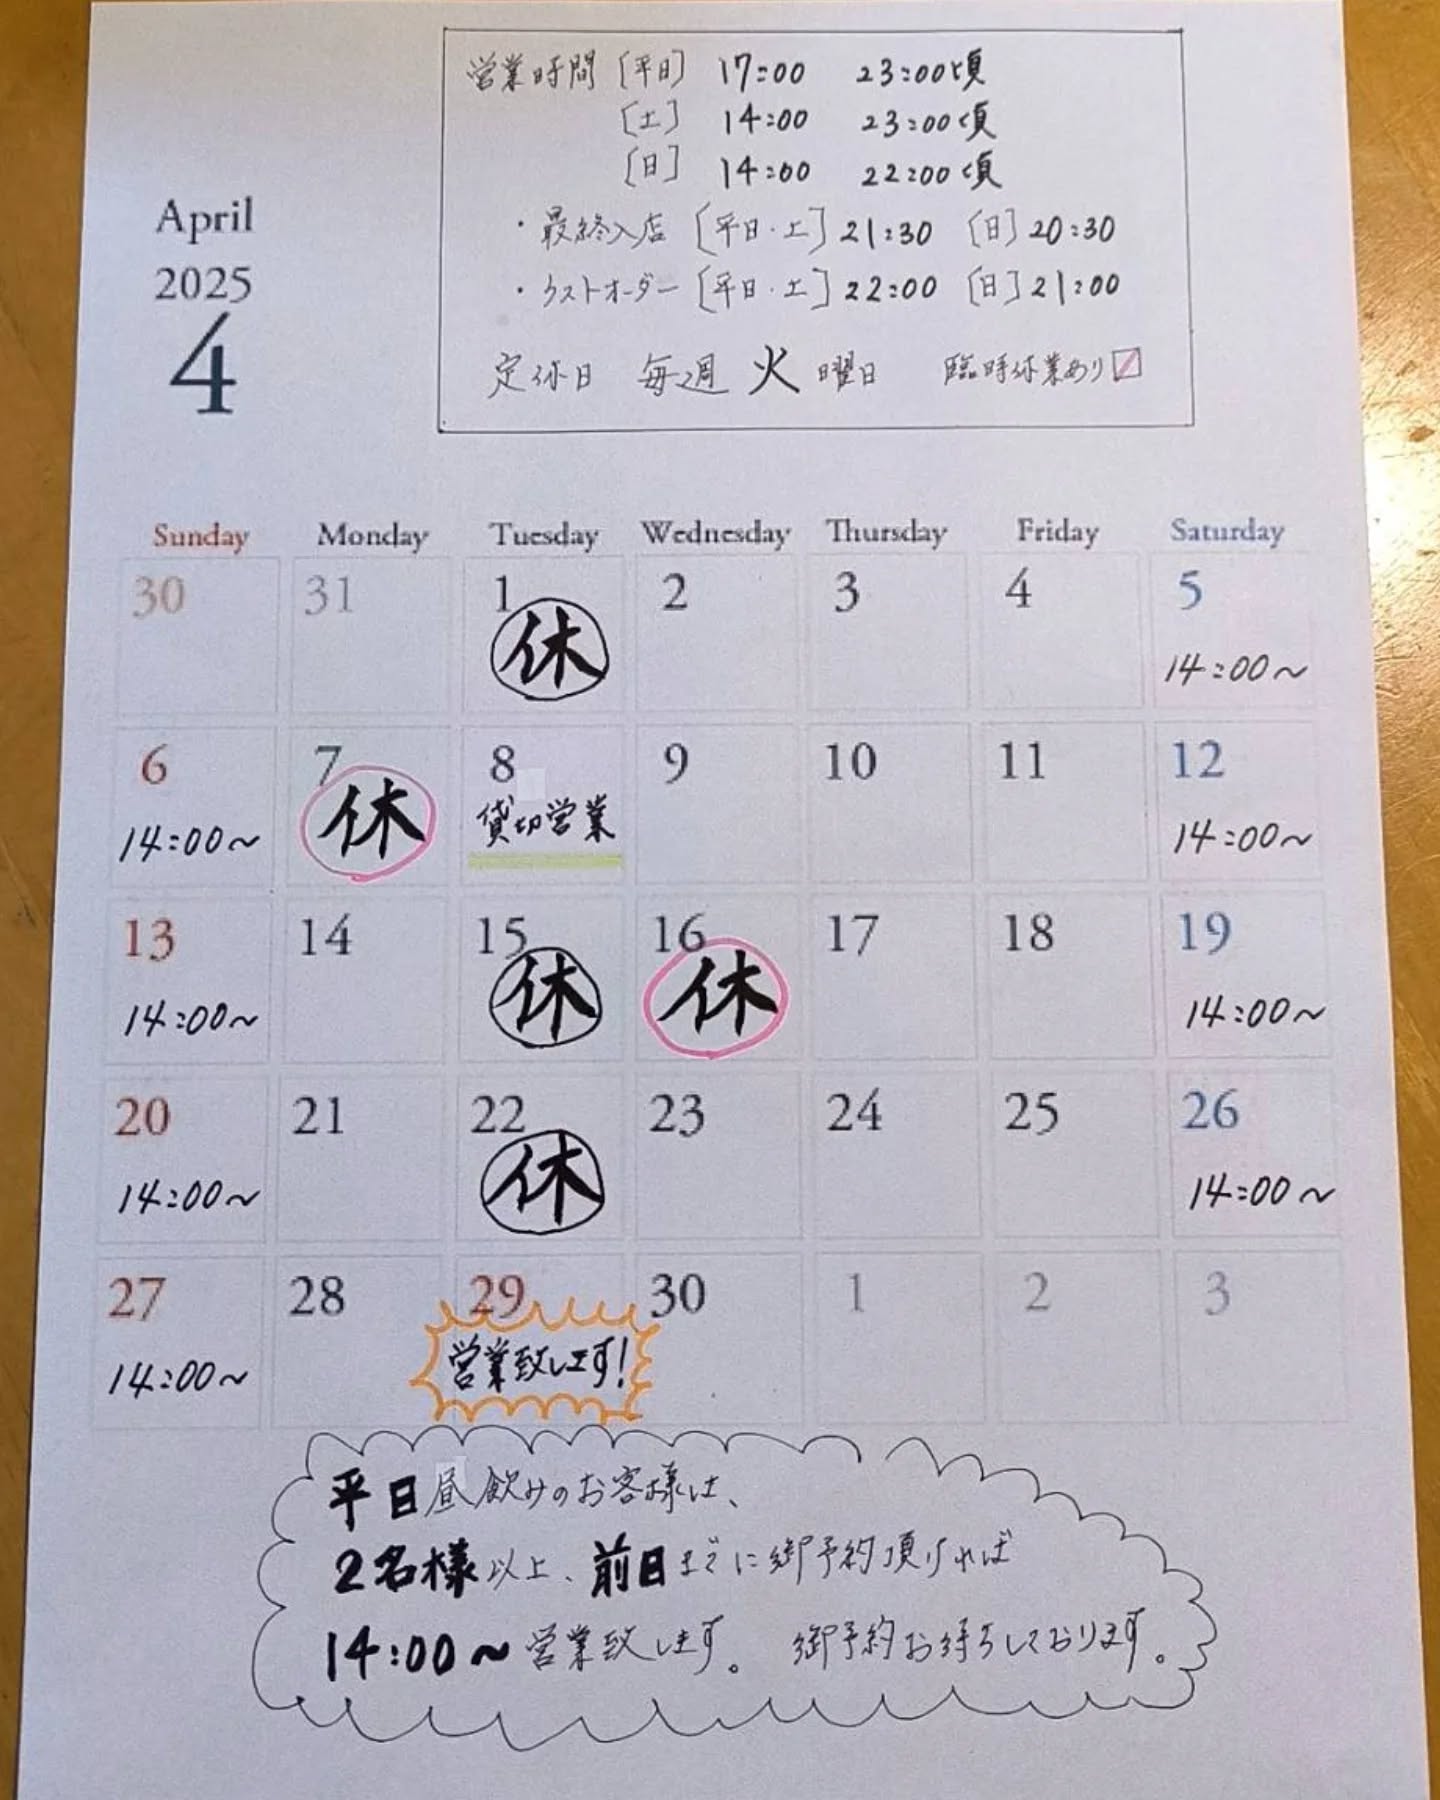 営業時間 [平日] 17:00 23:00頃
[土] 14:00 23:00頃
[日] 14:00 22:00頃
・最終入店 [平日・土] 21:30 [日] 20:30
・ラストオーダー [平日・土] 22:00 [日] 21:00
定休日 毎週 火 曜日 臨時休業あり
April
2025
4
Sunday Monday Tuesday Wednesday Thursday Friday Saturday
30 31 1 2 3 4 5
休 14:00~
6 7 8 9 10 11 12
14:00~ 休 貸切営業 14:00~
13 14 15 16 17 18 19
14:00~ 休 休 14:00~
20 21 22 23 24 25 26
14:00~ 休 14:00~
27 28 29 30 1 2 3
14:00~ 営業致します!
平日昼飲みのお客様は、
2名様以上、前日までに御予約頂ければ
14:00~営業致します。 御予約お待ちしております。